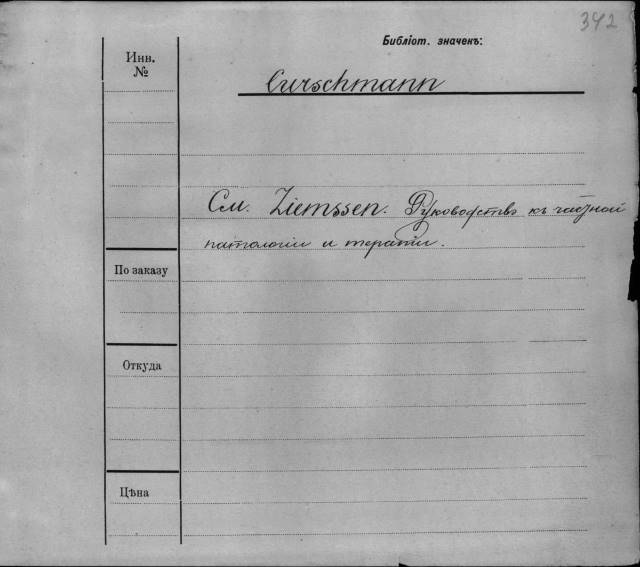 342
Библіот. значекъ:
Инв.
№
Curschmann
См. Ziemssen. Руководство къ частной
патологіи и терапіи.
По заказу
Откуда
Цѣна